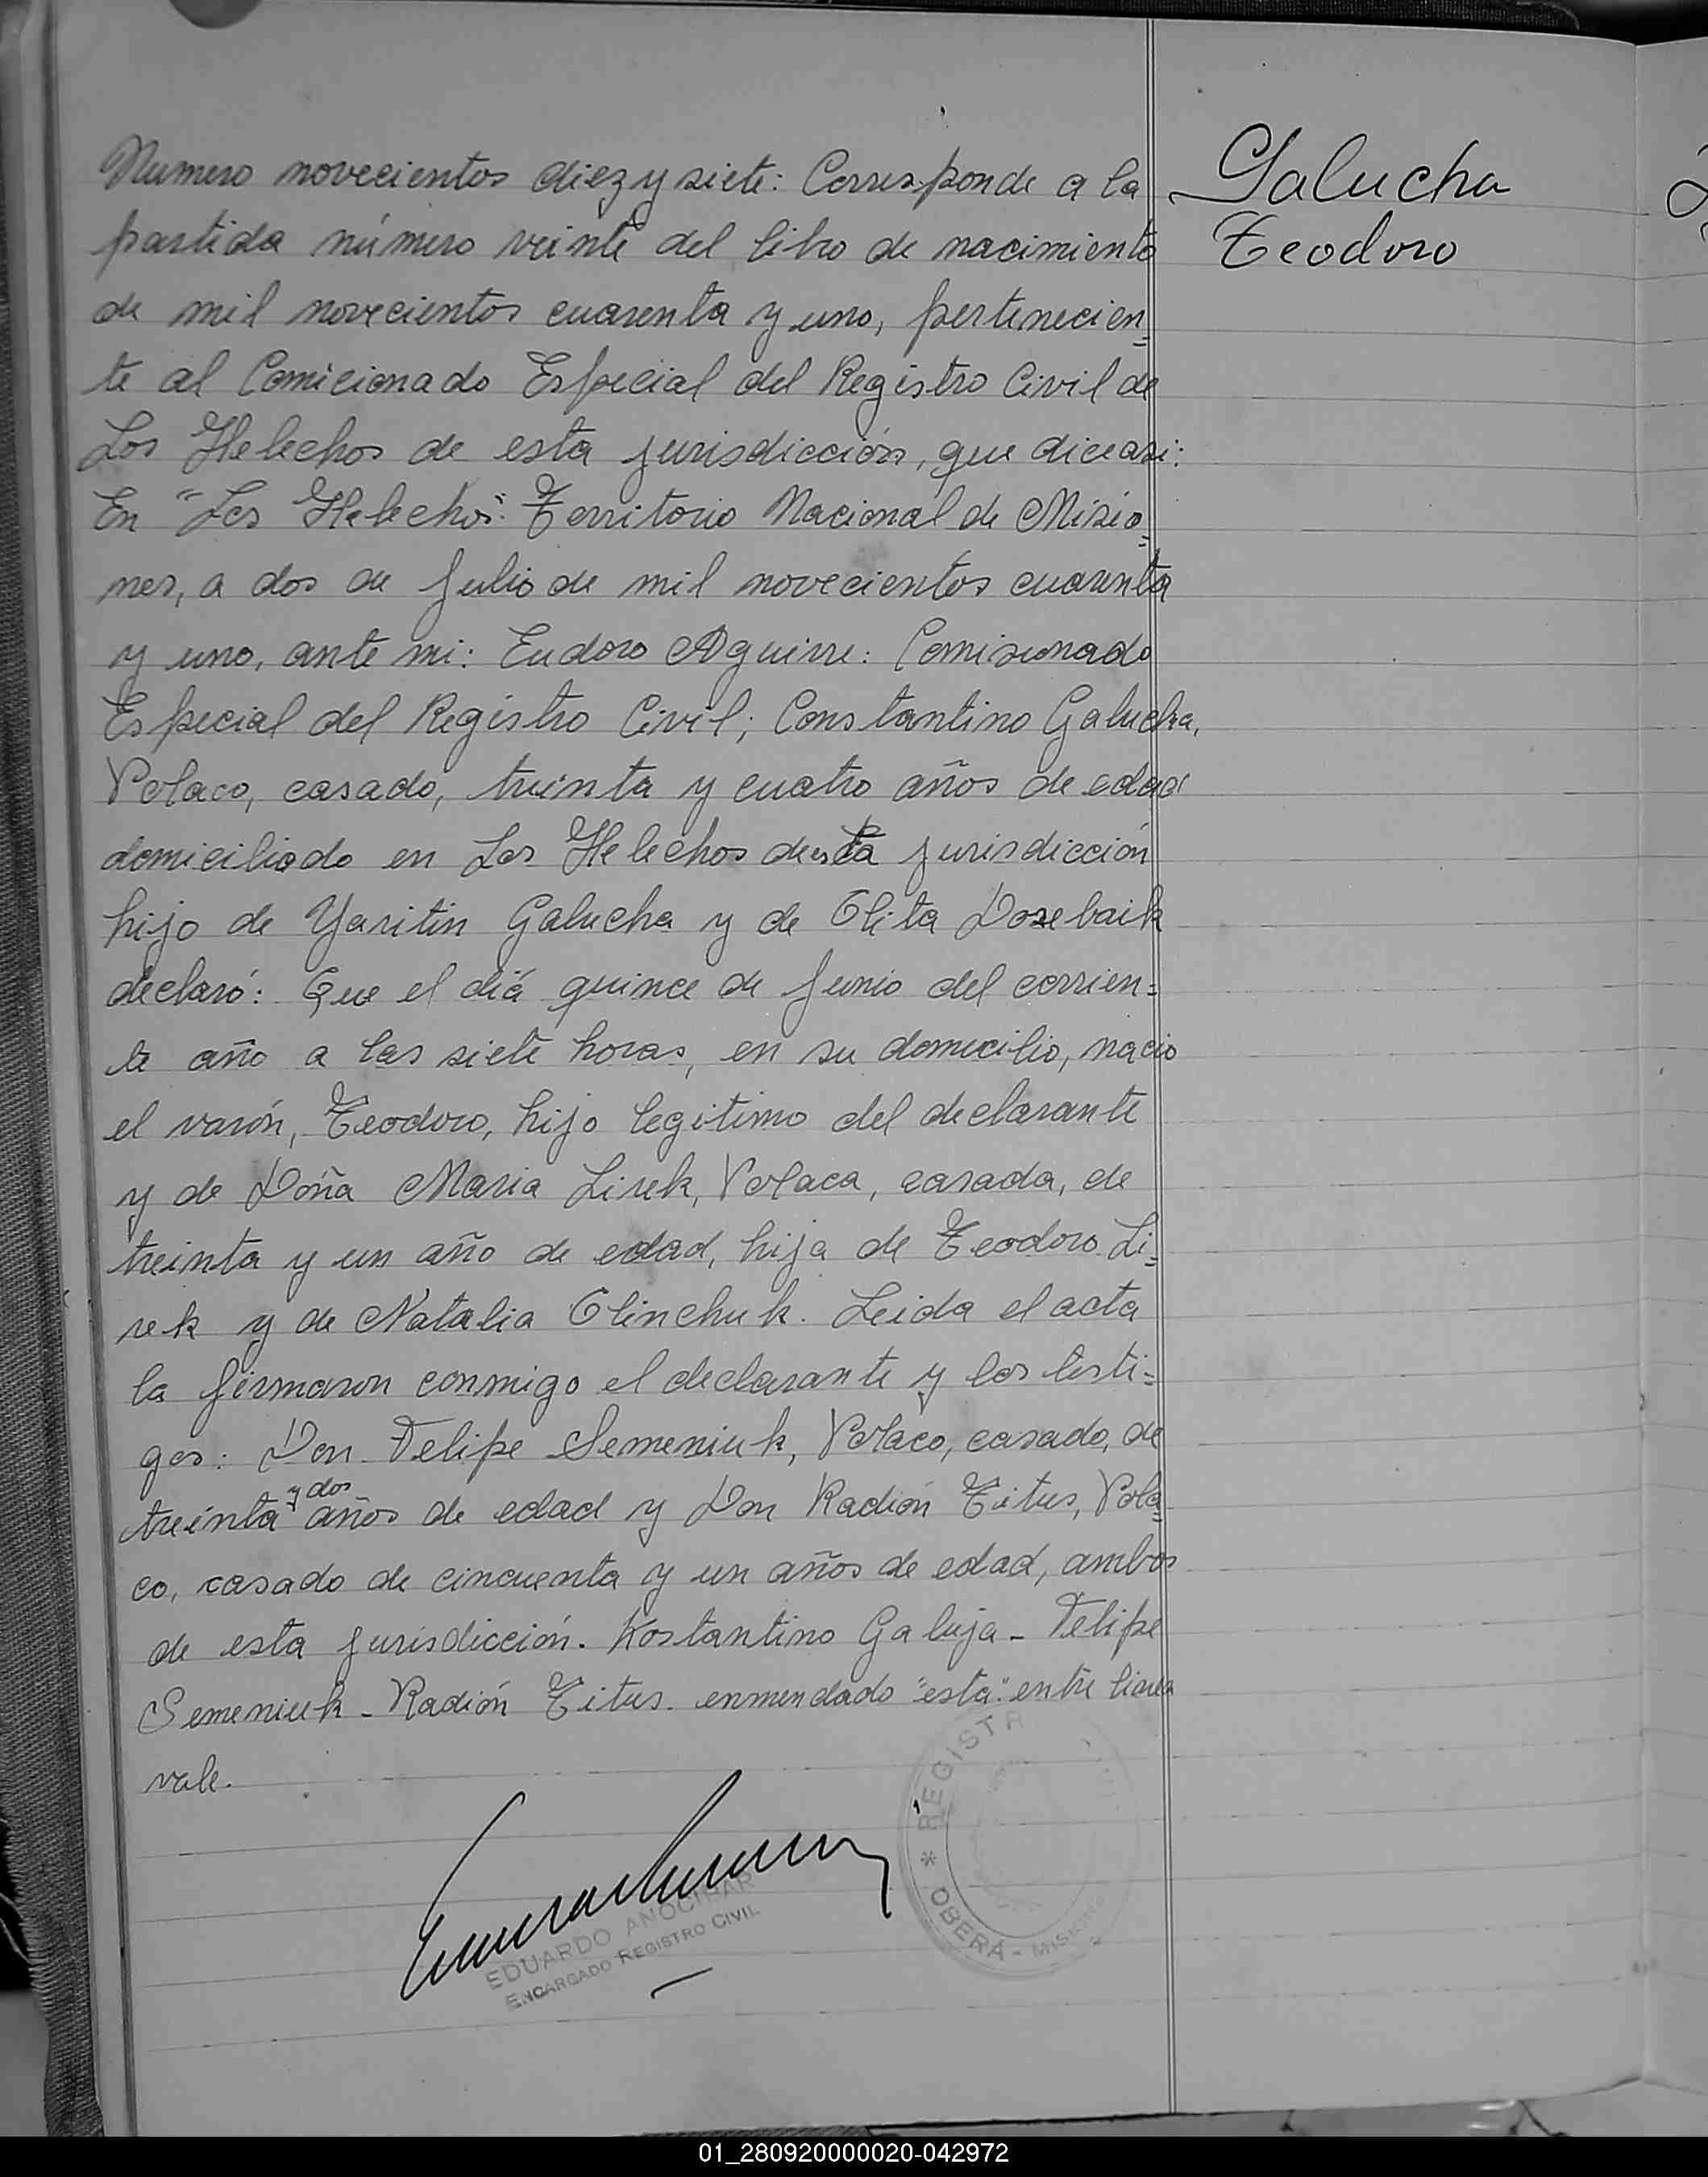 Numero novecientos diez y siete: Corresponde a la
partida número veinte del libro de nacimiento
de mil novecientos cuarenta y uno, pertenecien=
te al Comicionado Especial del Registro Civil de
Los Helechos de esta jurisdicción, que dice asi:
En "Los Helechos": Territorio Nacional de Misio=
nes, a dos de Julio de mil novecientos cuarenta
y uno, ante mi: Eudoro Aguirre: Comisionado
Especial del Registro Civil; Constantino Galucha,
Polaco, casado, treinta y cuatro años de edad
domiciliado en Los Helechos de esta jurisdicción
hijo de Yaritin Galucha y de Olita Dozebaik
declaró: Que el diá quince de Junio del corrien=
te año a las siete horas, en su domicilio, nacio
el varón, Teodoro, hijo legitimo del declarante
y de Doña Maria Lisek, Polaca, casada, de
treinta y un año de edad, hija de Teodoro Li=
sek y de Natalia Olinchuk. Leida el acta
la firmaron conmigo el declarante y los testi=
gos: Don Felipe Semeniuk, Polaco, casado, de
treinta y dos años de edad y Don Radión Titus, Pola=
co, casado de cincuenta y un años de edad, ambos
de esta jurisdicción. Kostantino Galuja - Felipe
Semeniuk - Radión Titus. enmendado "esta" entre linea
vale.
Galucha
Teodoro
EDUARDO ANOCIBAR
ENCARGADO REGISTRO CIVIL
* OBERÁ -
01_280920000020-042972